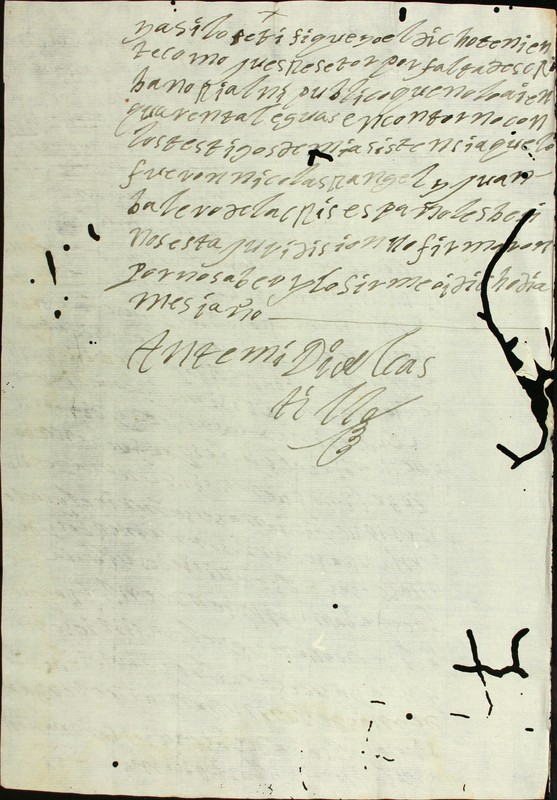 y asi lo serti fique yo el dicho tenien
te como jues Resetor por falta de scri
bano Rial ni publico que no lo ai en
quarenta leguas en contorno con
los testigos de mi asistensia que lo
fueron nicolas Rangel y juan
balero de la españoles beci
nos esta juridision no firmaron
por no saber y lo firme oi dicho dia
mes i año
Ante mi Di Cas
tillo